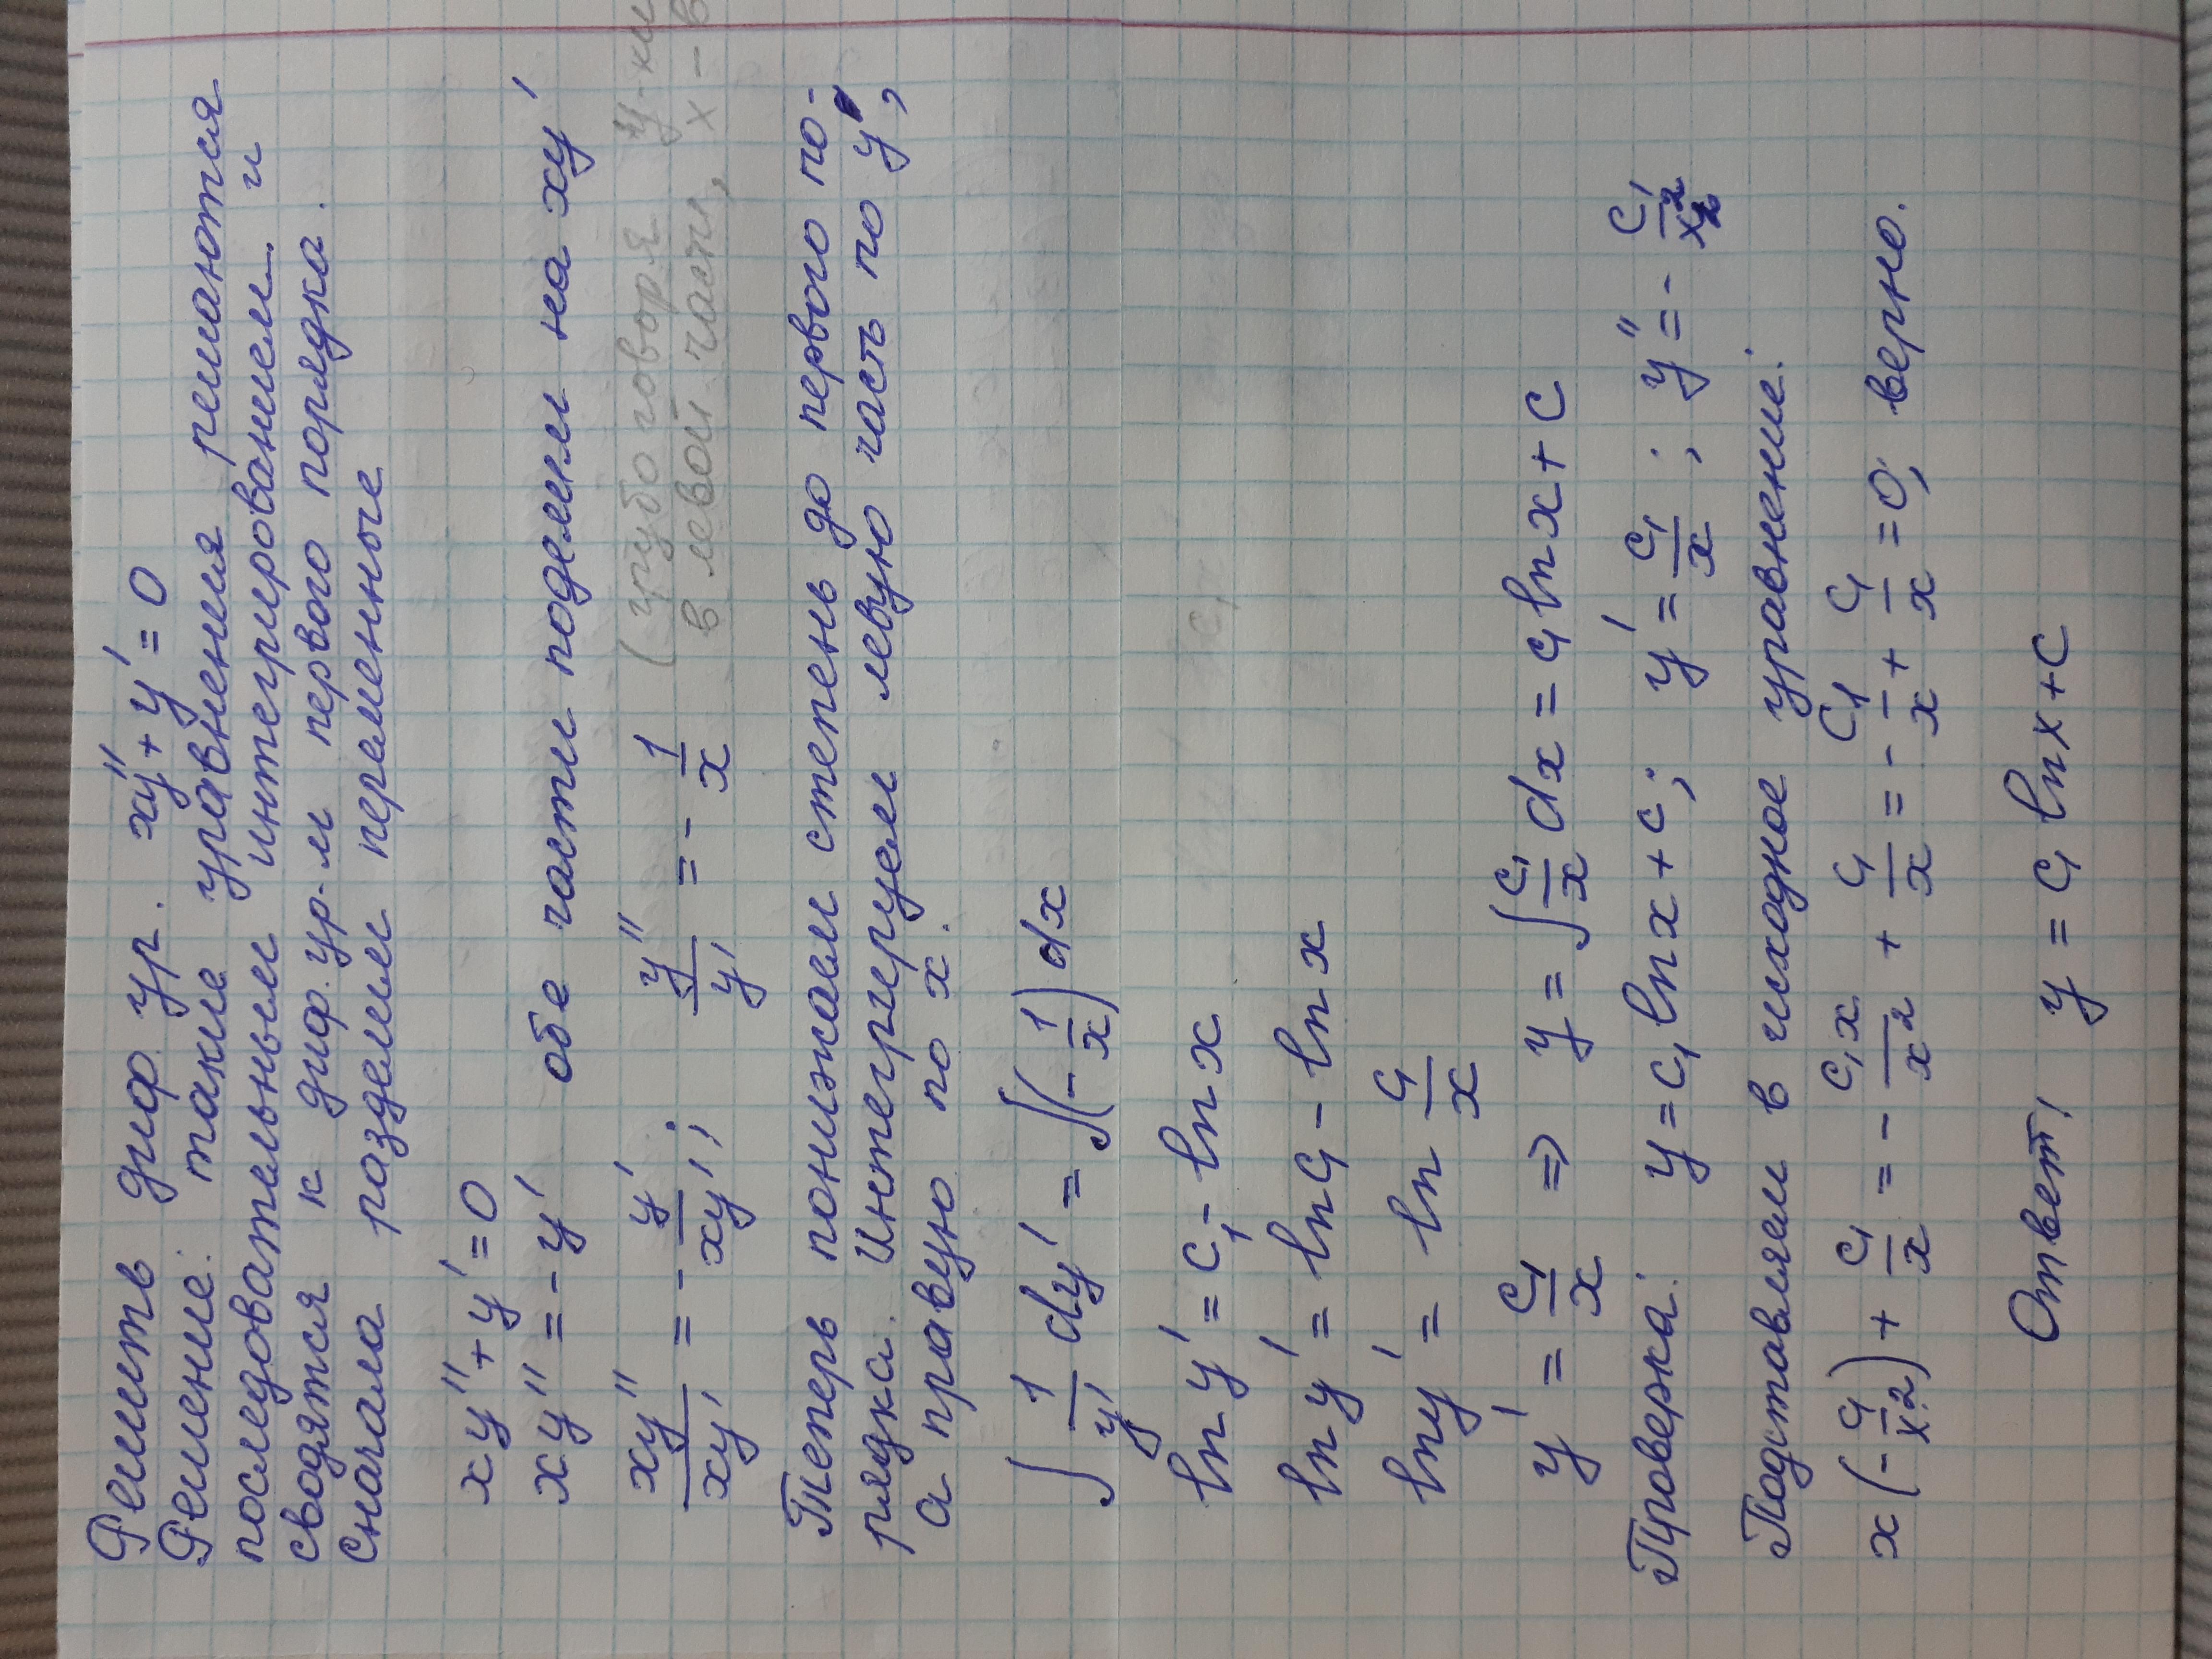 Решить диф. ур. xy''+y'=0
Решение: такие уравнения решаются
последовательным интегрированием и
сводятся к диф. ур-м первого порядка.
Сначала разделим переменные
xy''+y'=0
xy''=-y' обе части поделим на xy'
xy''/xy' = -y'/xy'; y''/y' = -1/x (грубо говоря y-ки
в левой части, x-в
Теперь понижаем степень до первого по-
рядка. Интегрируем левую часть по y',
а правую по x.
∫1/y' dy' = ∫(-1/x)dx
ln y' = C₁ - ln x
ln y' = ln C₁ - ln x
ln y' = ln C₁/x
y' = C₁/x ⇒ y = ∫C₁/x dx = C₁ ln x + C
Проверка: y = C₁ ln x + C; y' = C₁/x; y'' = -C₁/x²
Подставляем в исходное уравнение:
x(-C₁/x²) + C₁/x = -C₁x/x² + C₁/x = -C₁/x + C₁/x = 0; верно.
Ответ: y = C₁ ln x + C